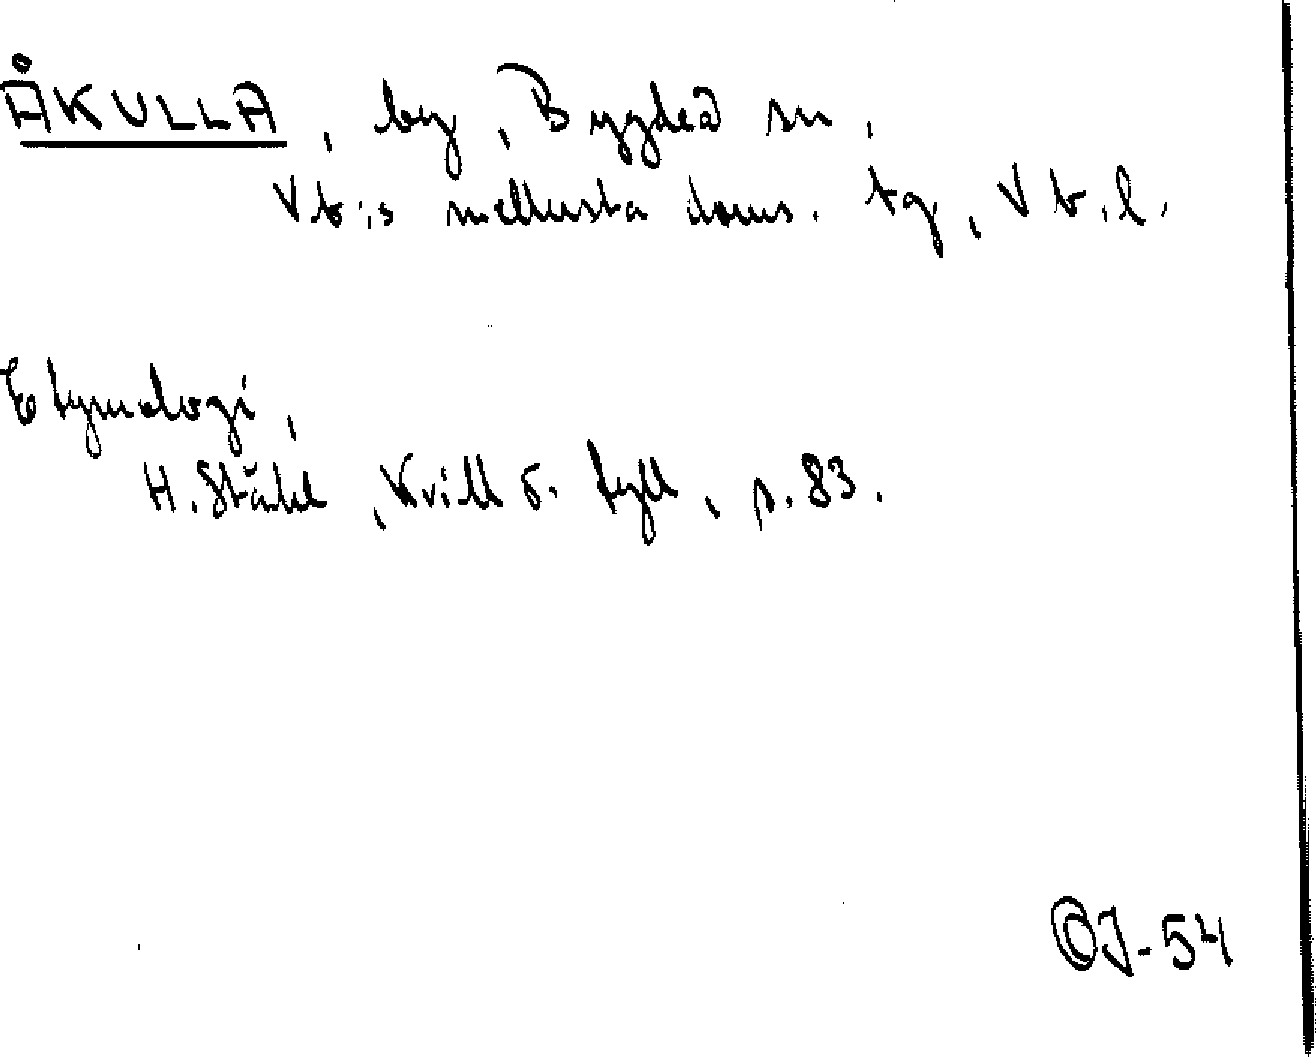 ÅKULLA, by, Bygdeå sn,
Vb:s mellersta doms. tg, Vb.l.
Etymologi,
H. Ståhl, Kvill o. tyll, p. 83.
OJ-54